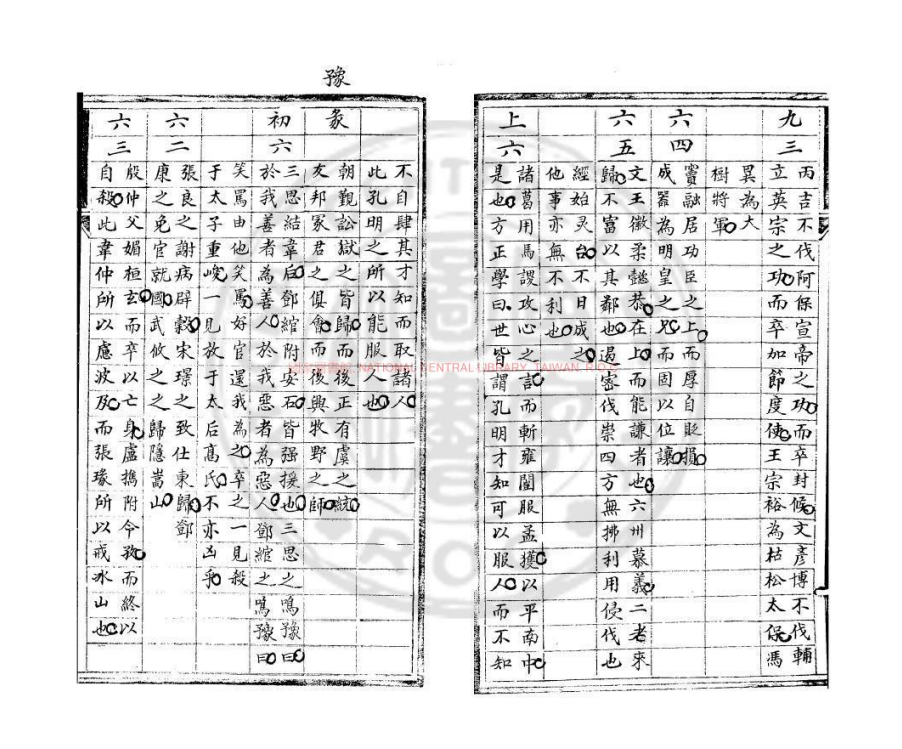 九三
丙吉不伐阿保宣帝之功而卒封候文彥博不伐輔
立英宗之功而卒加節度使王宗裕為枯松太保馮
異為大
樹將軍
六四
竇融居功臣之上而厚自貶損
成器為明皇之兄而固以位讓
六五
文王徽柔懿恭在上而能謙者也六州慕義二老來
歸不富以其鄰也遏密伐崇四方無拂利用侵伐也
經始灵台不日成之
他事亦無不利也
上六
諸葛用馬謖攻心之言而斬雍闓服孟獲以平南中
是也方正學曰世皆謂孔明才知可以服人而不知
不自肆其才知而取諸人
此孔明之所以能服人也
豫
彖
朝覲訟獄皆歸而後正有虞之統
友邦冢君之俱會而後興牧野之師
初六
三思結韋后鄧綰附安石皆强援也三思之鳴豫曰
於我善者為善人於我惡者為惡人鄧綰之鳴豫曰
笑罵由他笑罵好官還我為之卒之一見殺
于太子重峻一見放于太后高氏不亦凶乎
六二
張良之謝病辟穀宋璟之致仕東歸鄧
康之免官就國武攸之之歸隱嵩山
六三
殷仲父媚桓玄而卒以亡身盧攜附令孜而終以
自殺此韋仲所以應波及而張瑑所以戒氷山也